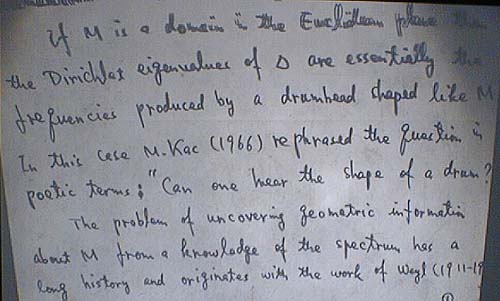 If M is a domain in the Euclidean plane then
the Dirichlet eigenvalues of Δ are essentially the
frequencies produced by a drumhead shaped like M
In this case M. Kac (1966) rephrased the question in
poetic terms: "Can one hear the shape of a drum?
The problem of uncovering geometric information
about M from a knowledge of the spectrum has a
long history and originates with the work of Weyl (1911-19
①